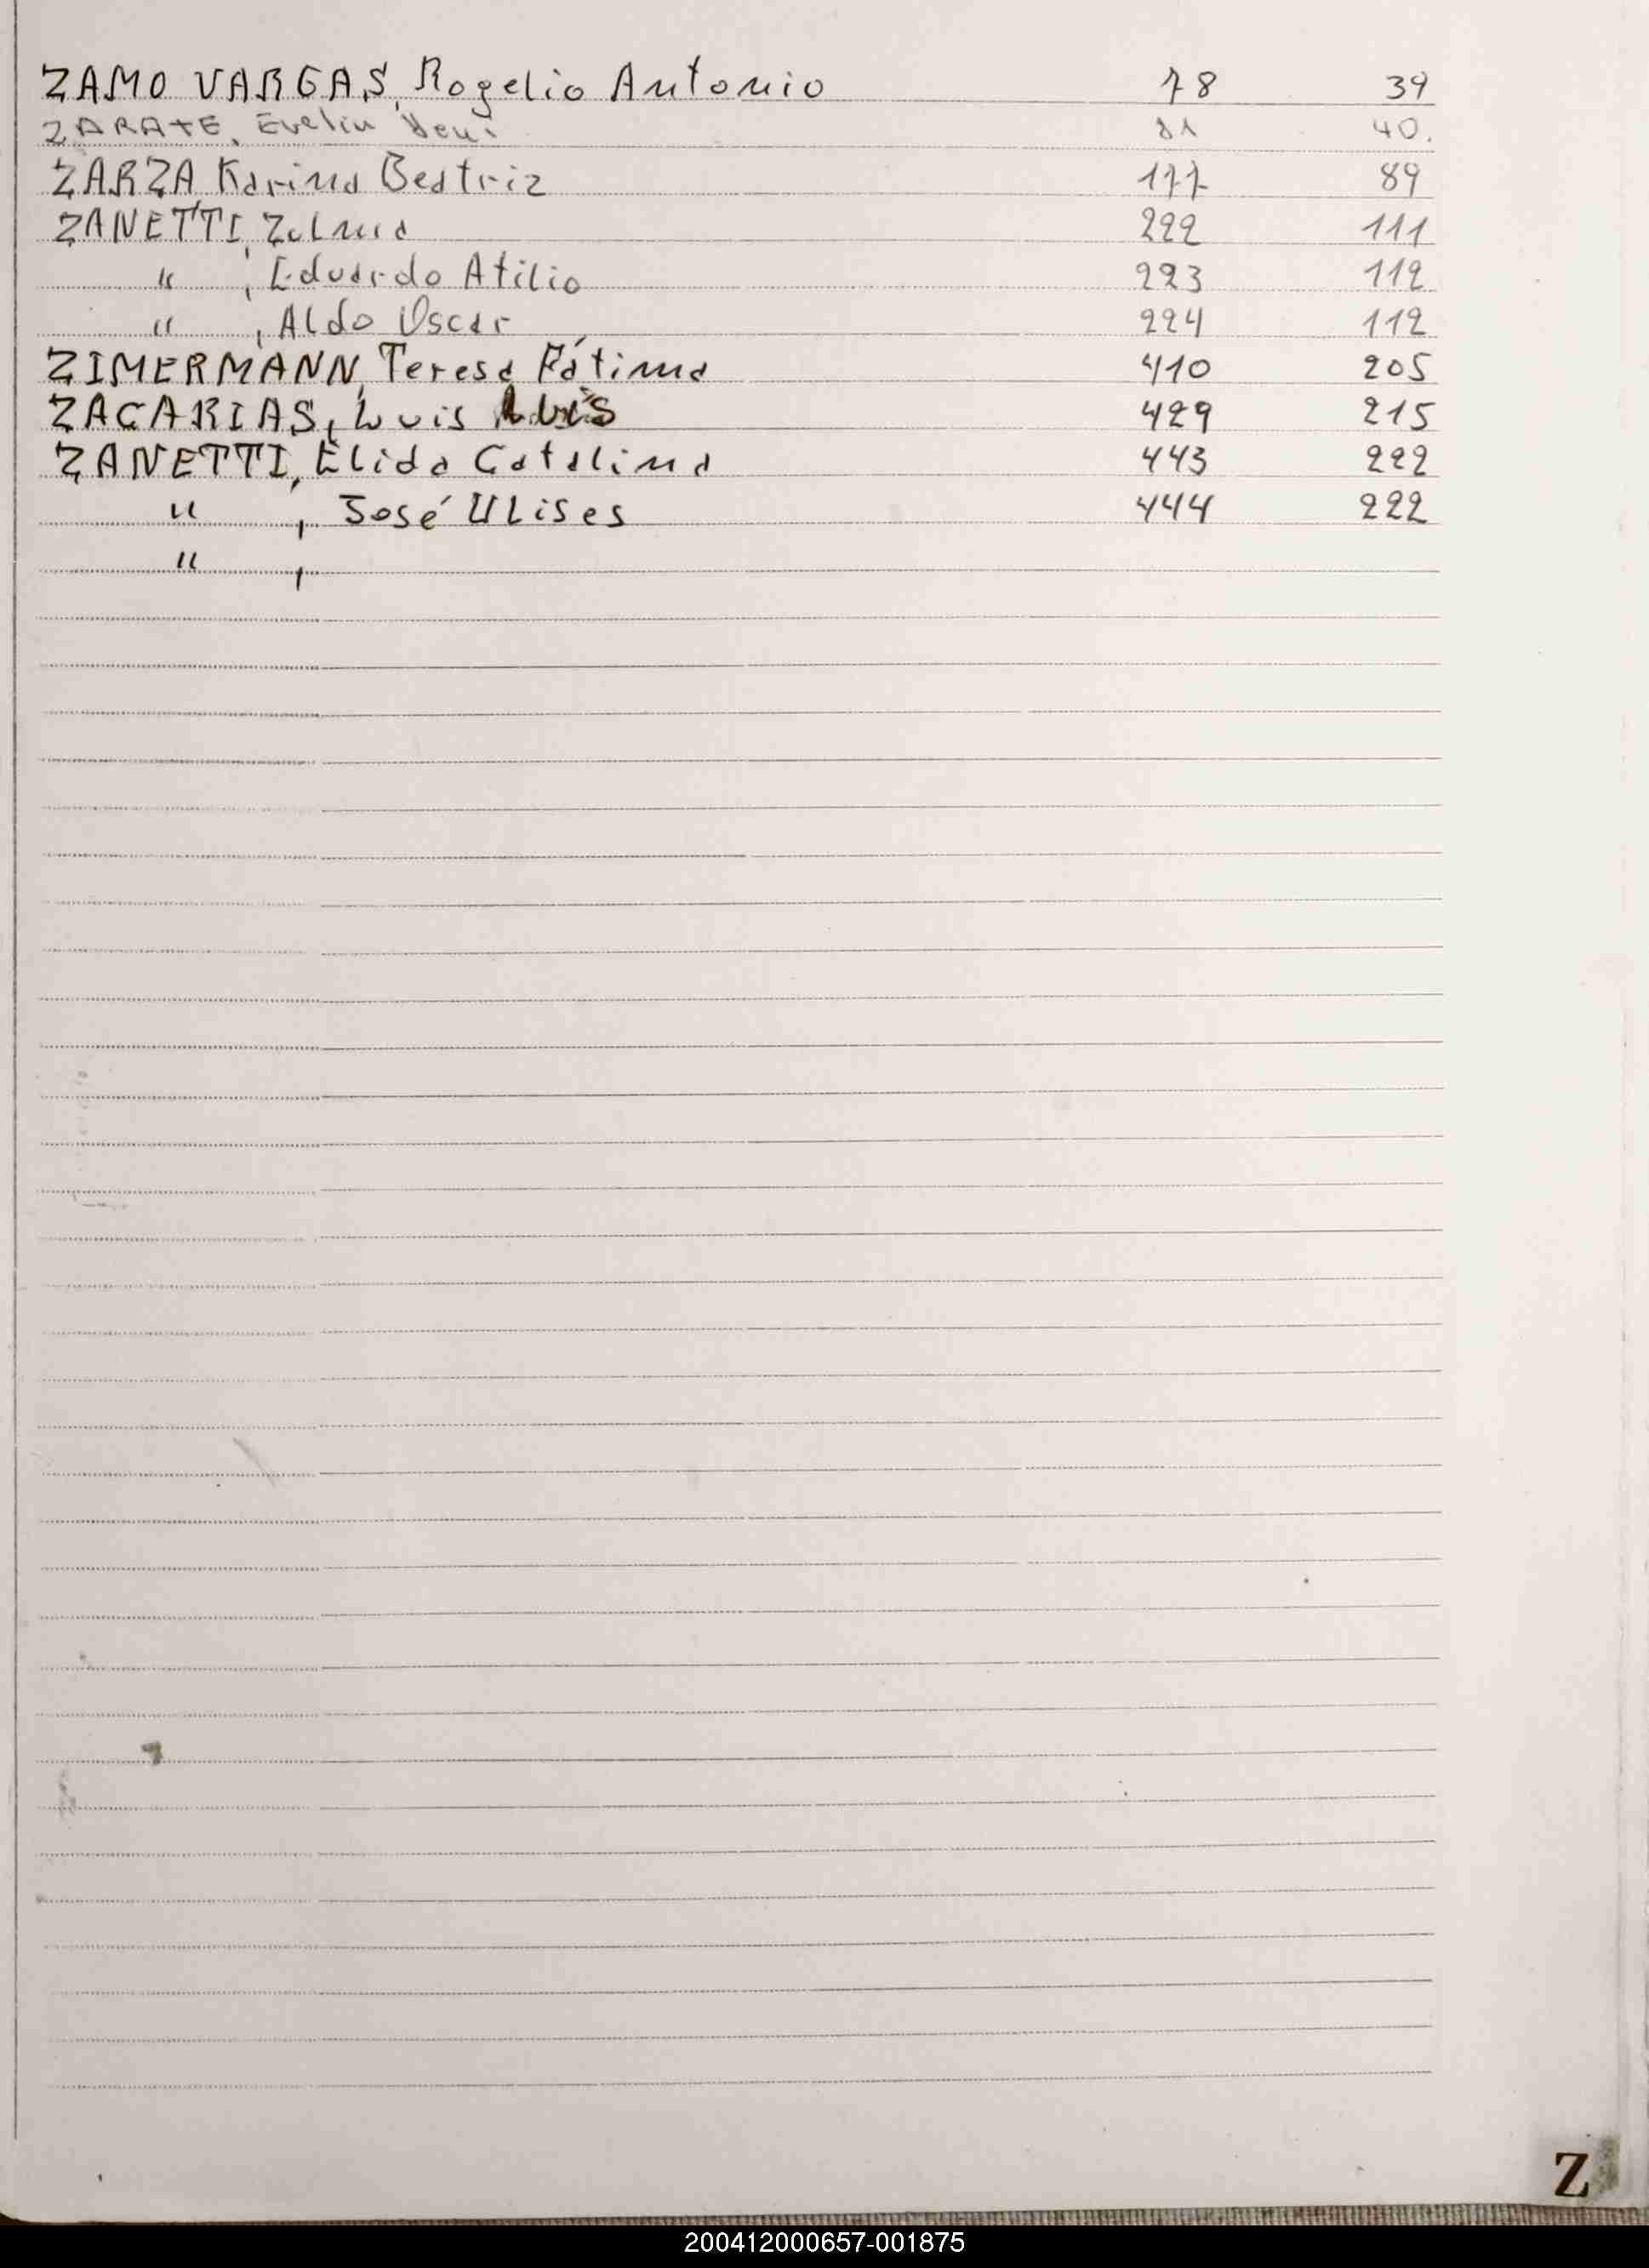 ZAMO VARGAS, Rogelio Antonio 78 39
ZARATE, Evelin 81 40.
ZARZA, Karina Beatriz 177 89
ZANETTI, Zulma 222 111
" , Eduardo Atilio 223 112
" , Aldo Oscar 224 112
ZIMERMANN, Teresa Fátima 410 205
ZACARIAS, Luis 429 215
ZANETTI, Élida Catalina 443 222
" , José Ulises 444 222
" ,
Z
200412000657-001875